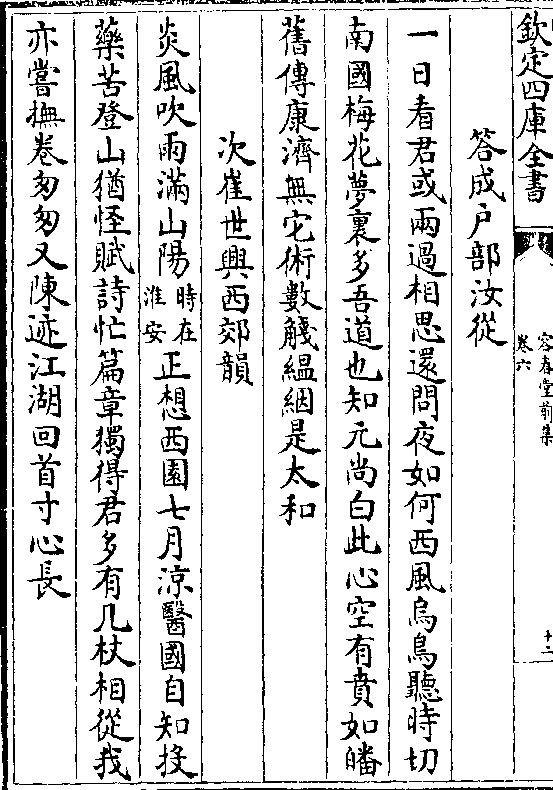 欽定四庫全書
容春堂前集
卷六
十二
答成户部汝從
一日看君或兩過相思還問夜如何西風烏鳥聽時切
南國梅花夢裏多吾道也知元尚白此心空有賁如皤
舊傳康濟無它術數觴緼絪是太和
次崔世興西郊韻
炎風吹雨滿山陽時在淮安正想西園七月涼醫國自知投
藥苦登山猶怪賦詩忙篇章獨得君多有几杖相從我
亦嘗撫卷匆匆又陳迹江湖回首寸心長